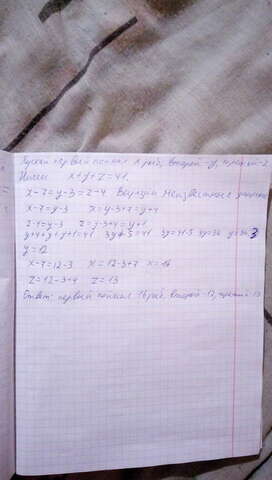 Пускай первый поймал x рыб, второй - y, третий - z.
Имеем x+y+z=41.
x-7=y-3=z-4 Выразим неизвестное
x-7=y-3 x=y-3+7=y+4
z-4=y-3 z=y-3+4=y+1
y+4+y+y+1=41 3y+5=41 3y=41-5 3y=36 y=36:3
y=12
x-7=12-3 x=12-3+7 x=16
z=12-3+4 z=13
Ответ: первый поймал 16 рыб, второй - 12, третий 13